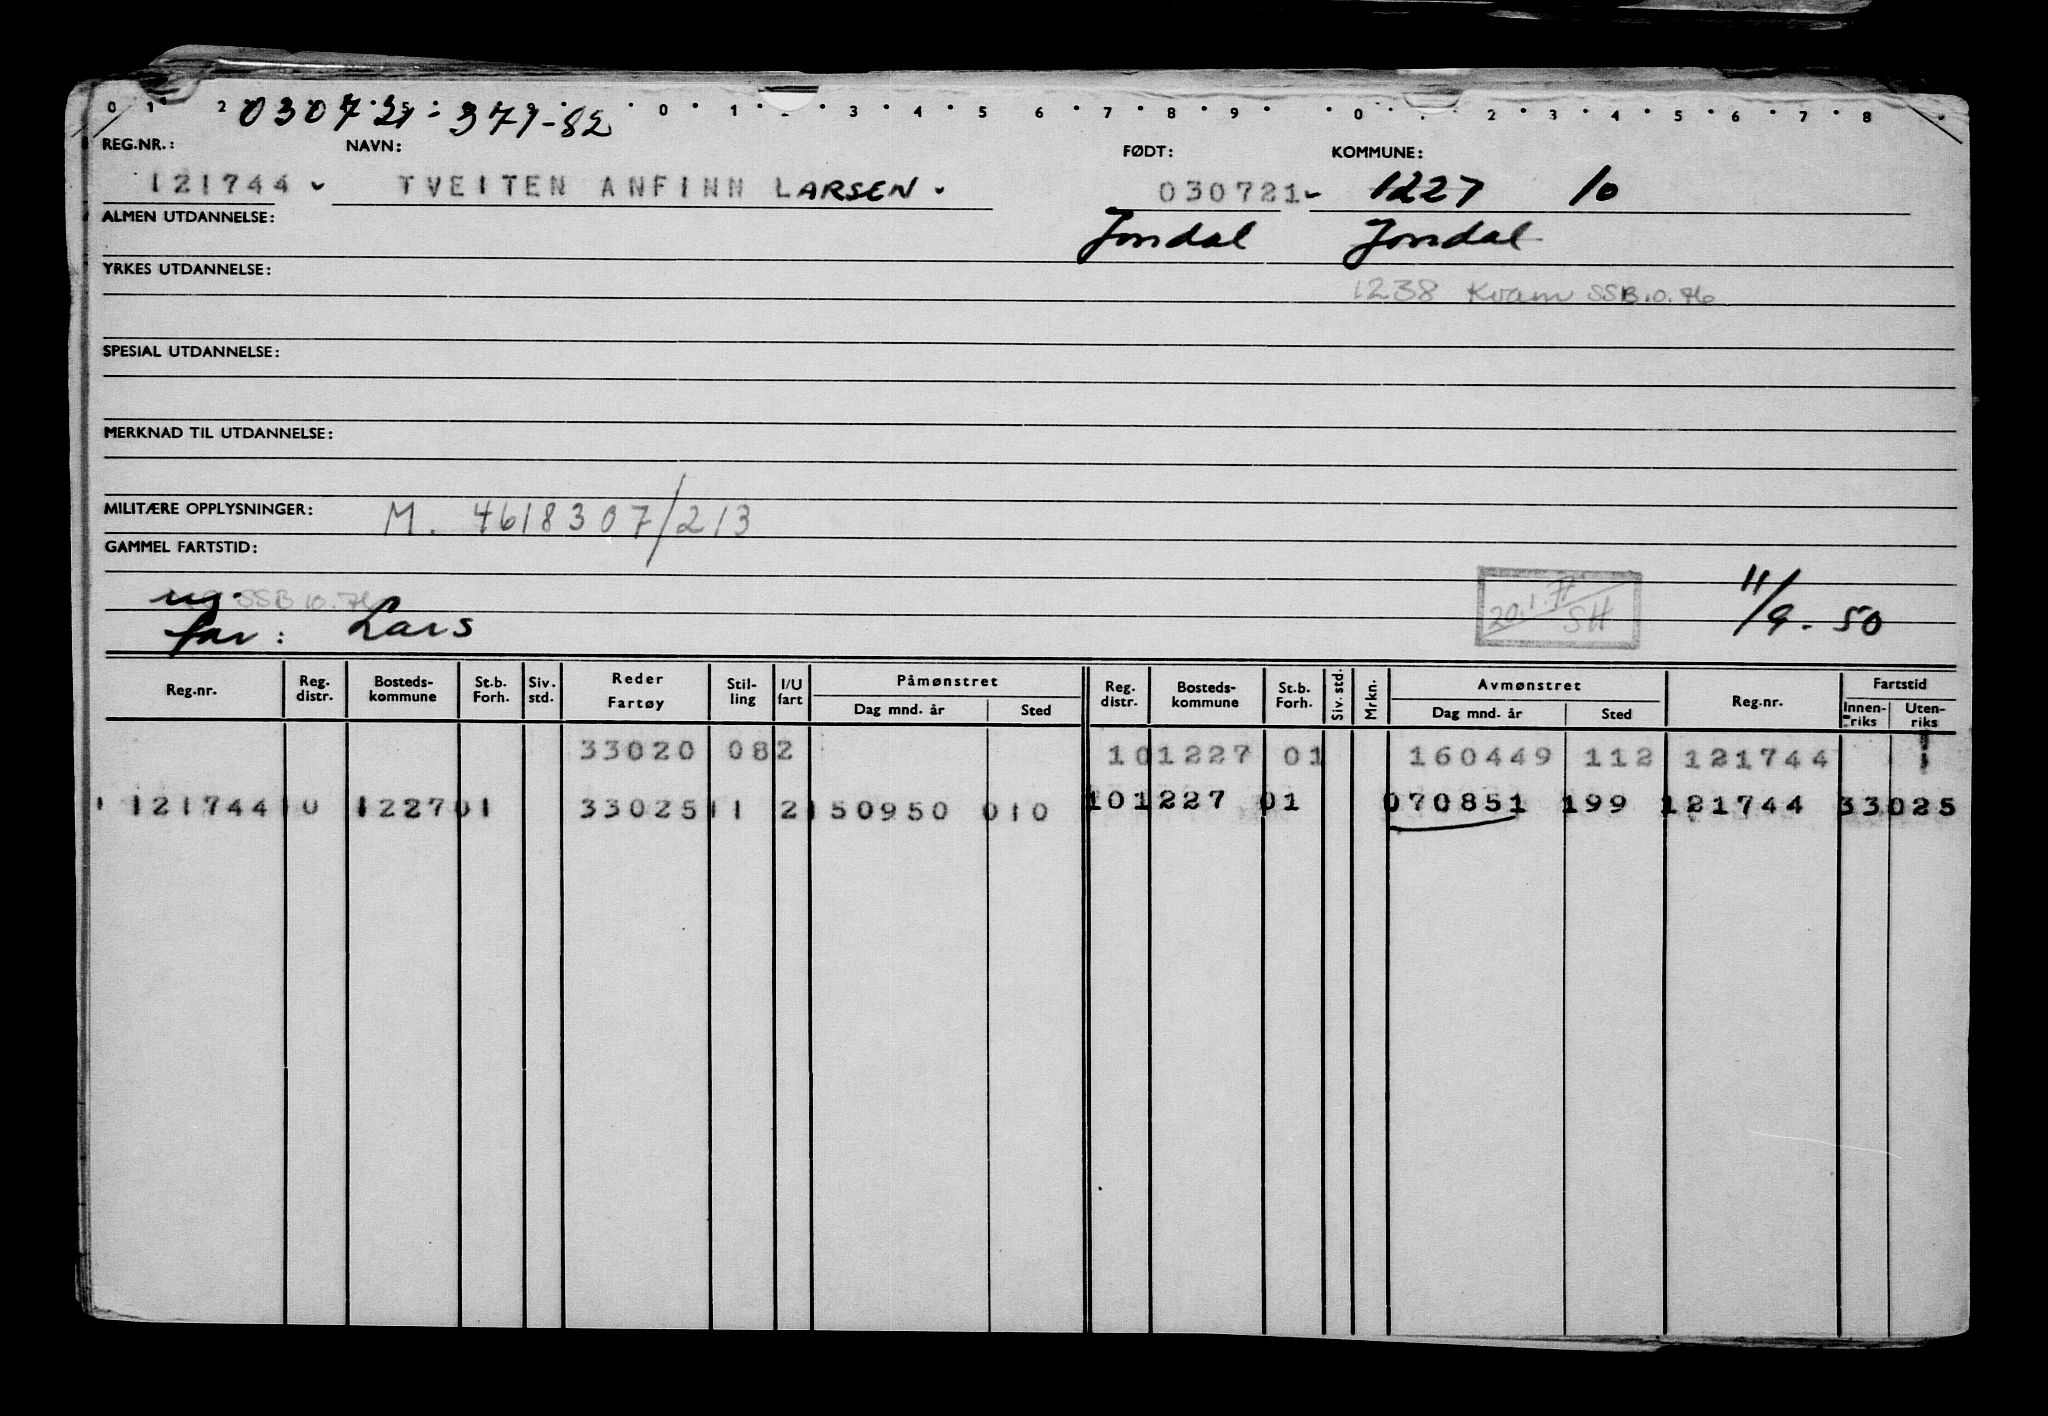 0 1 2 0 1 3 4 5 6 7 8 9 0 2 3 4 5 6 7 8
030721-379-82
REG.NR.: NAVN: FØDT: KOMMUNE:
121744 TVEITEN ANFINN LARSEN. 030721 1227 10
ALMEN UTDANNELSE: Jondal Jondal
YRKES UTDANNELSE:
1238 Kvam SSB 10.76
SPESIAL UTDANNELSE:
MERKNAD TIL UTDANNELSE:
MILITÆRE OPPLYSNINGER: M. 4618307/213
GAMMEL FARTSTID:
ug. SSB 10.76 20.1.77 SH 11/9-50
far: Lars
Reg.nr. Reg. distr. Bosteds-kommune St.b. Forh. Siv. std. Reder Fartøy Stil-ling I/U fart Påmønstret Dag mnd. år Sted Reg. distr. Bosteds-kommune St.b. Forh. Siv. std. Mrkn. Avmønstret Dag mnd. år Sted Reg.nr. Fartstid Innen-riks Uten-riks
33020 082 101227 01 160449 112 121744 1
121744 10 1227 01 33025 11 2 150950 010 101227 01 070851 199 121744 33025